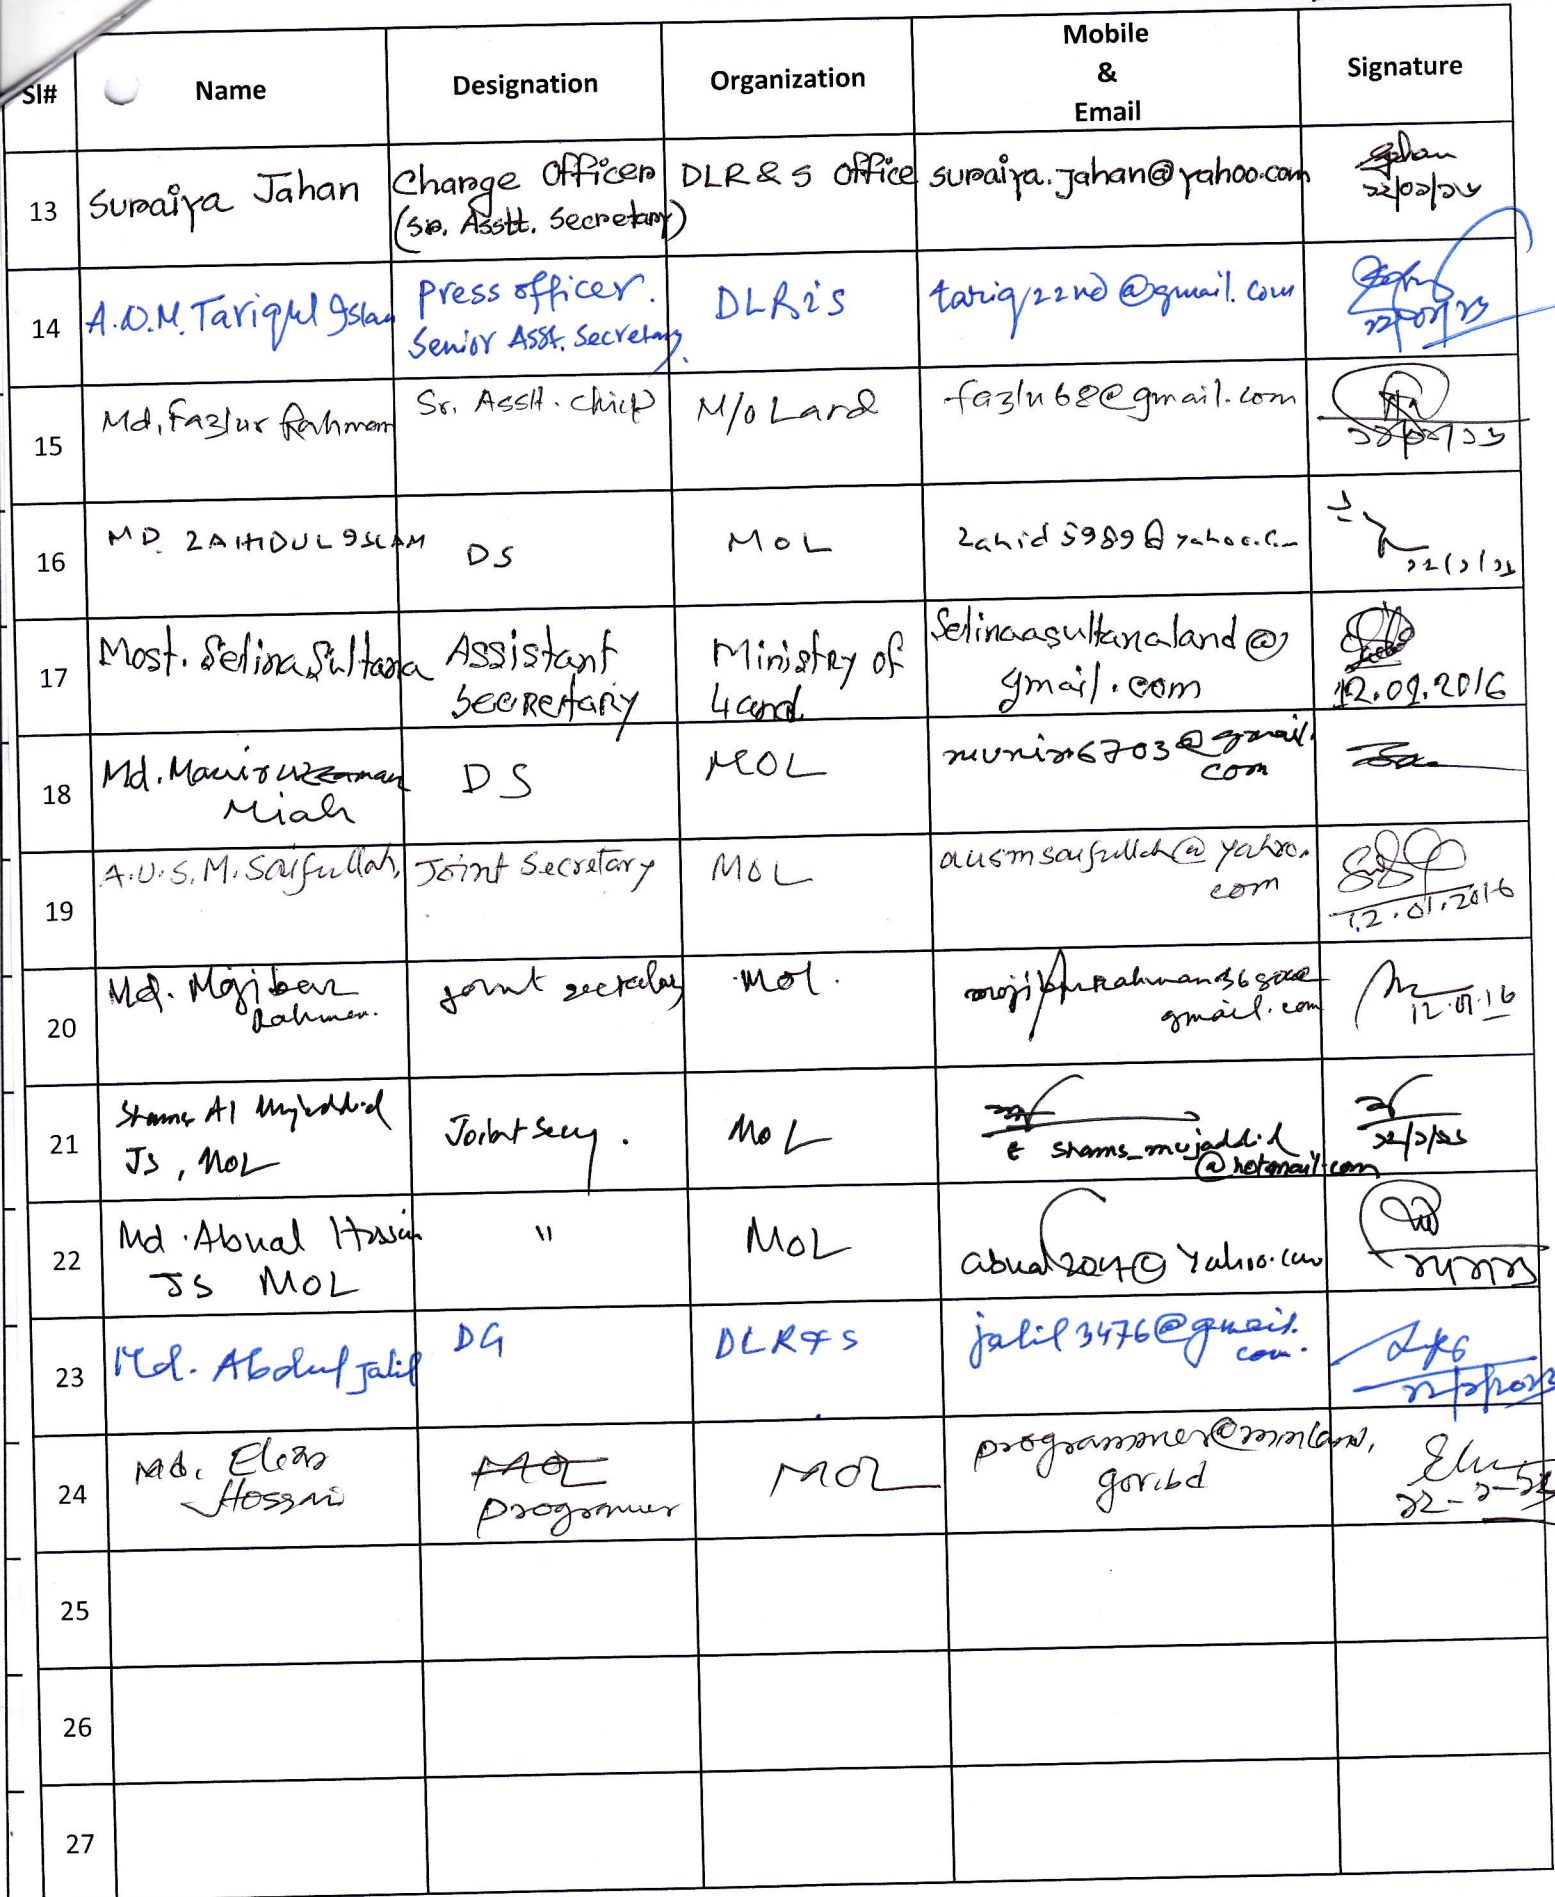 Sl#
Name
Designation
Organization
Mobile
&
Email
Signature
13
Suraiya Jahan
Charge Officer
(Sr. Asstt. Secretary)
DLR & S office
suraiya.jahan@yahoo.com
14
A.O.M. Tariqul Islam
Press officer.
Senior Asst. Secretary.
DLR&S
tariq22nd@gmail.com
15
Md. Fazlur Rahman
Sr. Asstt. Chief
M/o Land
fazlu68@gmail.com
16
MD. ZAHIDUL ISLAM
DS
MOL
zahid5989@yahoo.com
17
Most. Selina Sultana
Assistant
Secretary
Ministry of
Land
Selinaasultanaland@
gmail.com
12.01.2016
18
Md. Moniruzzaman
Miah
DS
MOL
munir6703@gmail.
com
19
A.U.S.M. Saifullah,
Joint Secretary
MOL
ausmsaifullah@yahoo.
com
12.01.2016
20
Md. Mojibur
Rahman.
Joint Secretary
MoL.
gmail.com
12.01.16
21
Shams Al Mujaddid
JS, MOL
Joint Secy.
MoL
shams_mujaddid
@hotmail.com
১২/১/১৬
22
Md. Abual Hossain
JS MOL
"
MOL
abual2017@yahoo.com
23
Md. Abdul Jalil
DG
DLR&S
jalil3476@gmail.
com.
24
Md. Elias
Hossain
programmer
MOL
programmer@minland.
gov.bd
১২-১-১৬
25
26
27